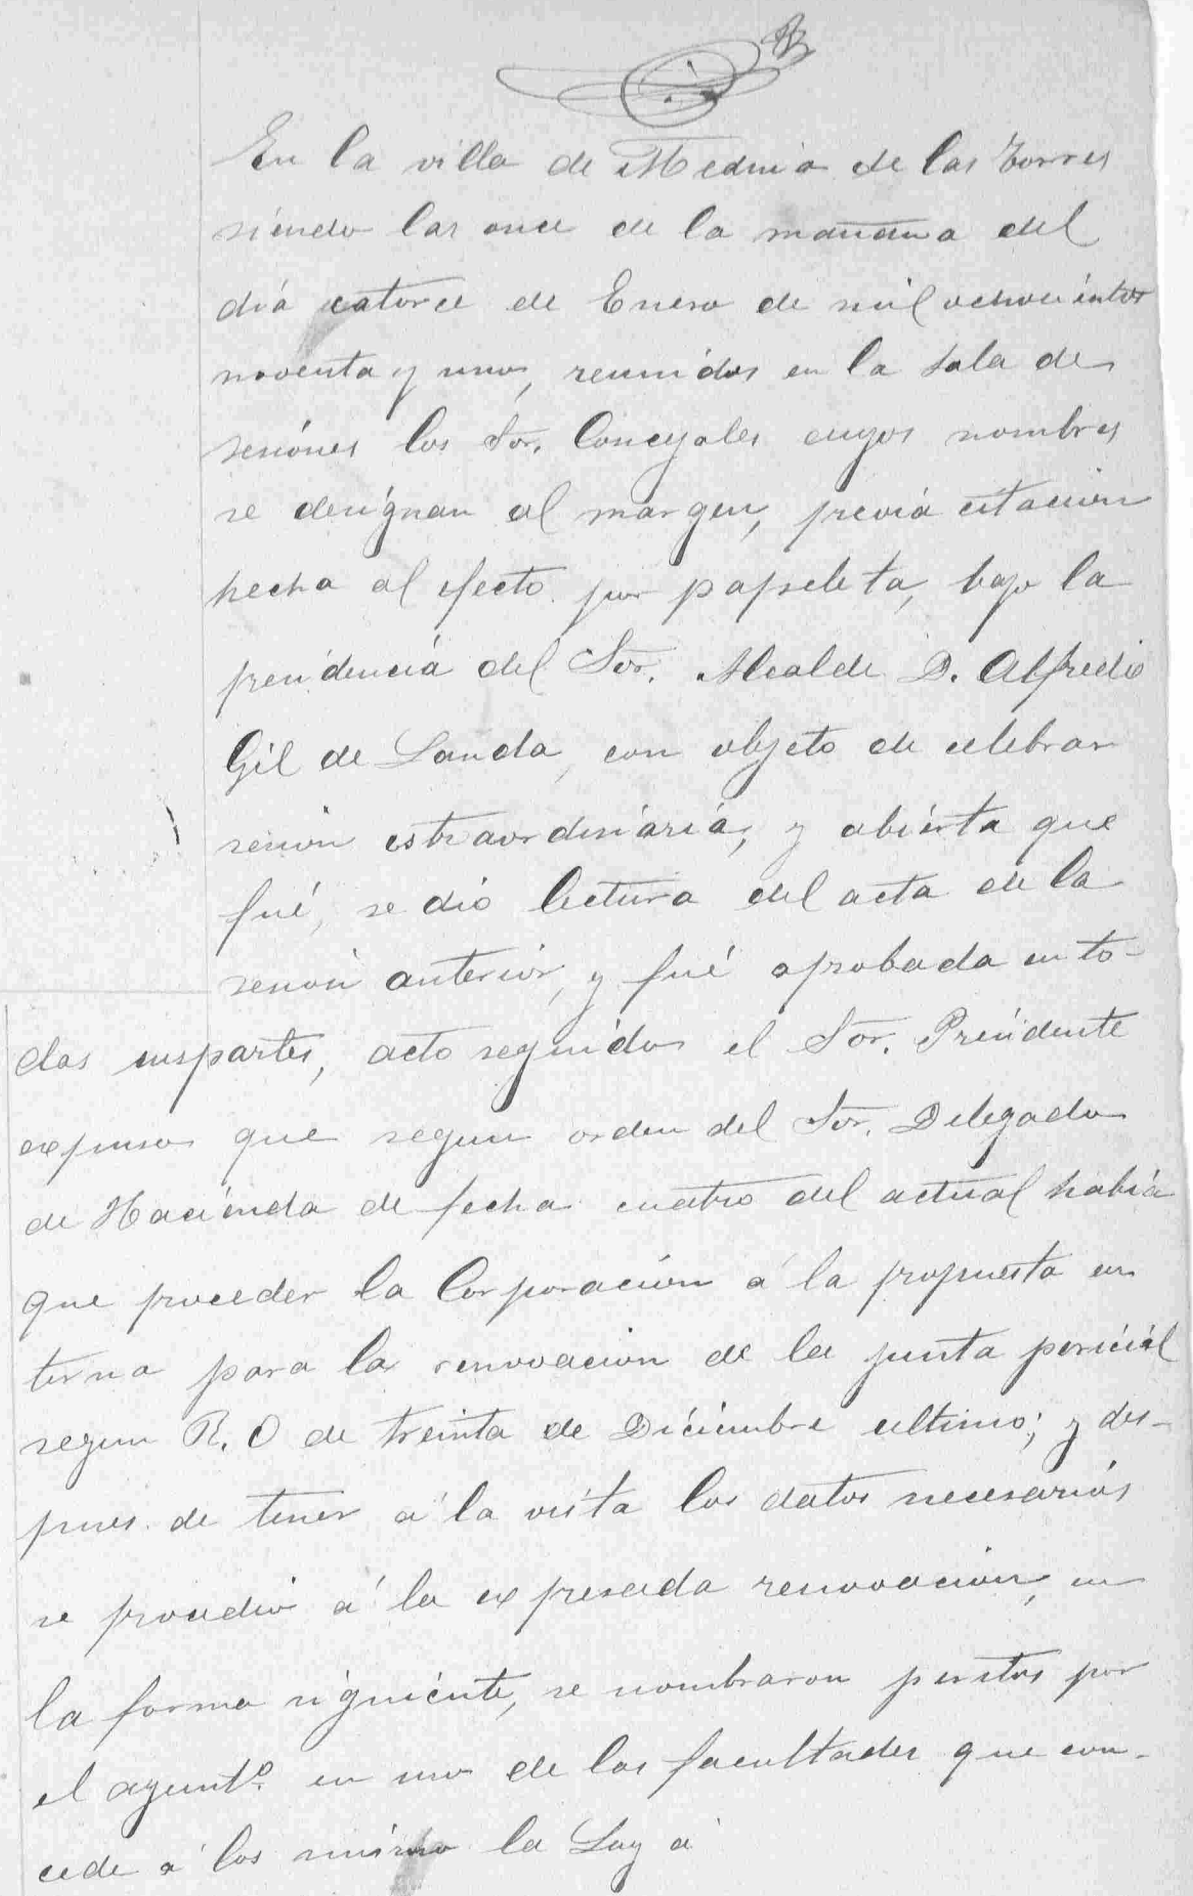 En la villa de Medina de las Torres
siendo las once de la mañana del
dia catorce de Enero de mil ochocientos
noventa y uno, reunidos en la Sala de
sesiónes los Sor. Concejales cuyos nombres
se desígnan al margen, previá citacion
hecha al efecto por papeleta, bajo la
presidenciá del Sor. Alcalde D. Alfredo
Gil de Landa, con objeto de celebrar
sesion estraordináriá, y abiérta que
fué, se dió lectura del acta de la
sesion anterior, y fué aprobada en to-
das sus partes, acto seguído el Sor. Presidente
expuso que segun orden del Sor. Delegado
de Haciénda de fecha cuatro del actual habiá
que proceder la Corporacion á la propuesta en
terna para la renovacion de la junta periciál
segun R. O de treinta de Diciémbre ultimo; y des-
pues de tener á la vista los datos necesariós
se procedio á la expresada renovacion, en
la forma siguiénte, se nombraron peritos por
el ayuntº. en uso de las facultades que con-
cede á los mismo la Ley á